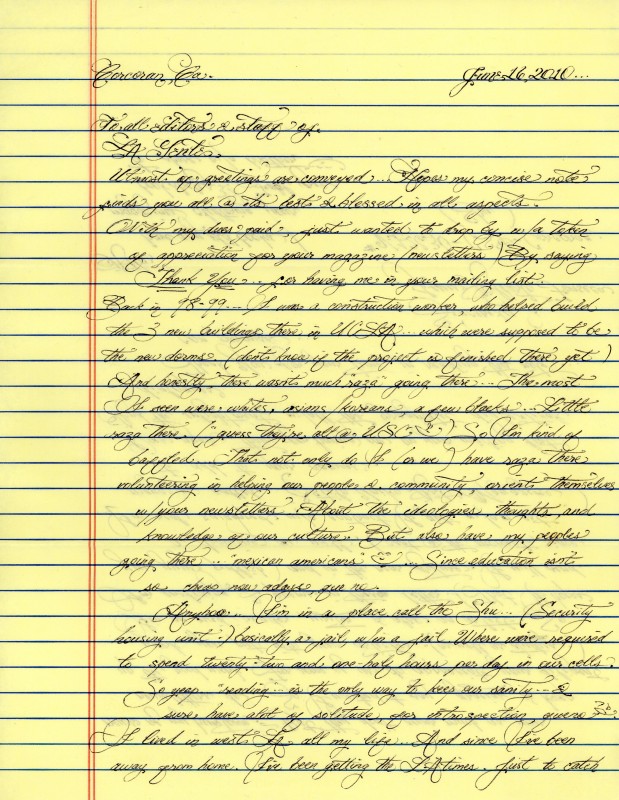 Corcoran, Ca. June 16, 2010...
To all editors & staff of.
LA Gente.
Utmost of greetings are conveyed... Hopes my concise note
finds you all @ its best & blessed in all aspects.
With my dues paid, just wanted to drop by w/a token
of appreciation for your magazine (newsletters) By, saying
Thank You... for having me in your mailing list.
Back in 98-99... I was a construction worker, who helped build
the 3 new buildings there in UCLA... which were supposed to be
the new dorms. (dont know if the project is finished there yet.)
And honestly, there wasnt much "raza" going there... The most
I seen were whites, asians/koreans, a few blacks... Little
raza there. (guess they're all @ USC) So I'm kind of
baffled. That not only do I (or we) have raza there
volunteering in helping our peoples & community, orients themselves
w/your newsletters. About the ideologies, thoughts, and
knowledge of our culture.. But also have my peoples
going there.. "mexican americans"... Since education isn't
so cheap, now adays, que no.
Anyhoo.. I'm in a place call the Shu... (Security
housing unit.) basically a jail, w/in a jail. Where were required
to spend twenty-two and one-half hours per day in our cells.
So yeap "reading" is the only way to keep our sanity... &
sure have alot of solitude, for introspection,
I lived in west LA all my life... And since I've been
away from home. I've been getting the LA times. Just to catch